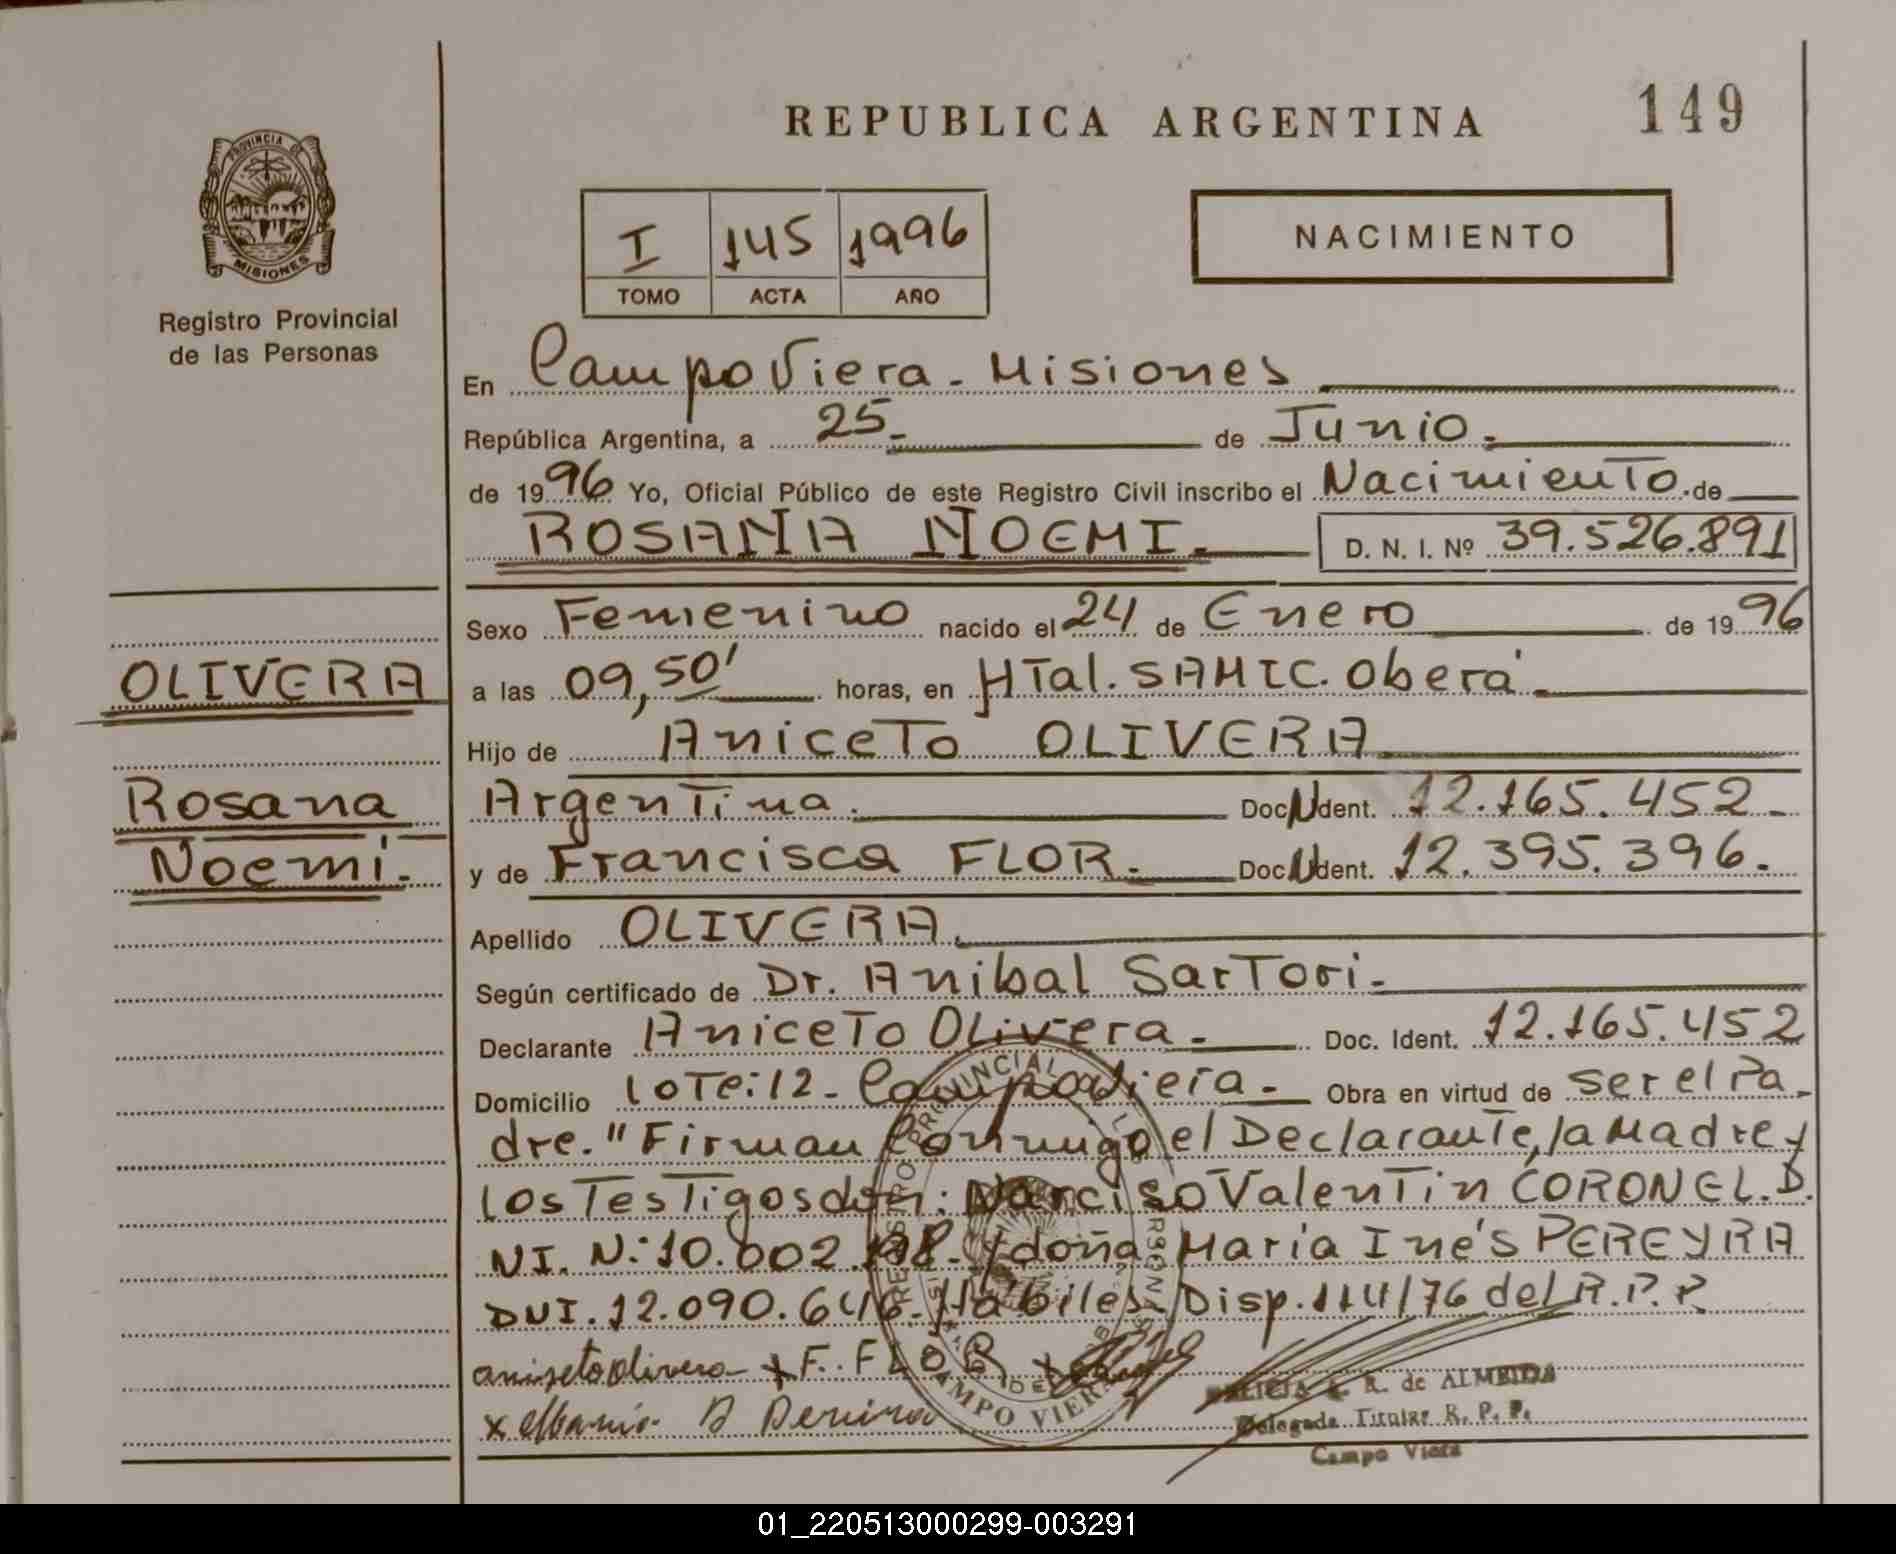 REPUBLICA ARGENTINA
149
PROVINCIA DE
MISIONES
Registro Provincial
de las Personas
I 145 1996
TOMO ACTA AÑO
NACIMIENTO
En Campo Viera - Misiones
República Argentina, a 25 - de Junio.
de 1996 Yo, Oficial Público de este Registro Civil inscribo el Nacimiento de
ROSANA NOEMI. D. N. I. Nº 39.526.891
Sexo Femenino nacido el 24 de Enero de 1996
OLIVERA
a las 09,50' horas, en HTal. SAMIC. Oberá
Hijo de Aniceto OLIVERA
Rosana
Noemí.
Argentina. Doc. Ident. 12.165.452 -
y de Francisca FLOR. Doc. Ident. 12.395.396.
Apellido OLIVERA.
Según certificado de Dr. Anibal Sartori -
Declarante Aniceto Olivera - Doc. Ident. 12.165.452
Domicilio lote: 12 - Campo Viera - Obra en virtud de ser el Pa-
dre. "Firman Conmigo el Declarante, la Madre y
los Testigos don: Narciso Valentin CORONEL. D.
NI. N: 10.002. y doña María Inés PEREYRA
DNI. 12.090.646. Hábiles Disp. 114/76 del R.P.P
aniseto olivera x F. FLOR x
x
REGISTRO PROVINCIAL DE LAS PERSONAS
CAMPO VIERA
ALICIA R. de ALMEIDA
Delegada Titular R. P. P.
Campo Viera
01_220513000299-003291